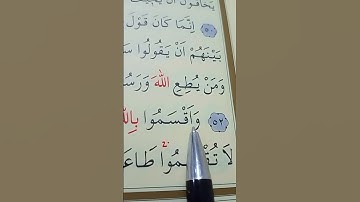 يَخَافُونَ اَنْ يَحٖيفَ
﴿٥٠﴾ اِنَّمَا كَانَ قَوْلَ
بَيْنَهُمْ اَنْ يَقُولُوا
وَمَنْ يُطِعِ اللّٰهَ وَرَسُ
﴿٥٢﴾ وَاَقْسَمُوا بِاللّٰ
لَا تُقْسِمُوا طَاعَ